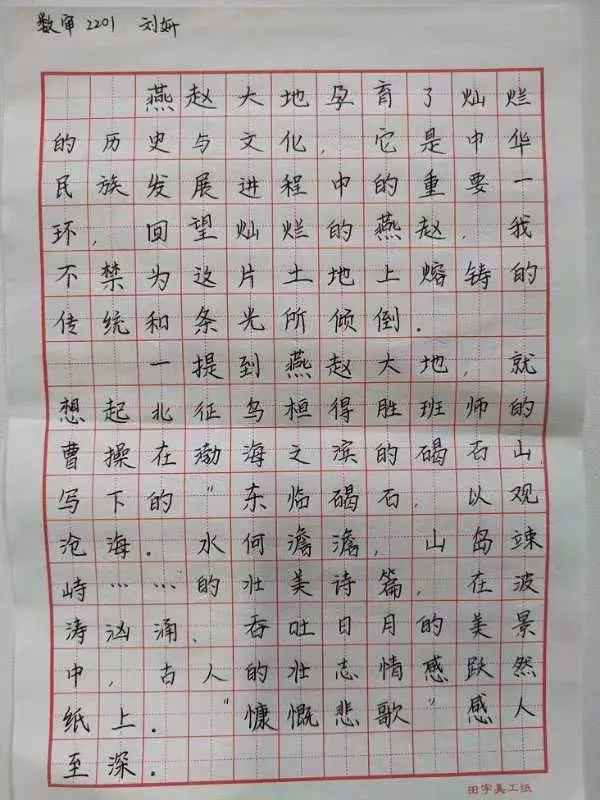 数审2201 刘妍
燕赵大地孕育了灿烂
的历史与文化，它是中华
民族发展进程中的重要一
环，回望灿烂的燕赵，我
不禁为这片土地上熔铸的
传统和条光所倾倒.
一提到燕赵大地，就
想起北征乌桓得胜班师的
曹操在渤海之滨的碣石山，
写下的“东临碣石，以观
沧海.水何澹澹，山岛竦
峙……的壮美诗篇，在波
涛汹涌、吞吐日月的美景
中，古人的壮志情感跃然
纸上.“慷慨悲歌”感人
至深.
田字美工纸